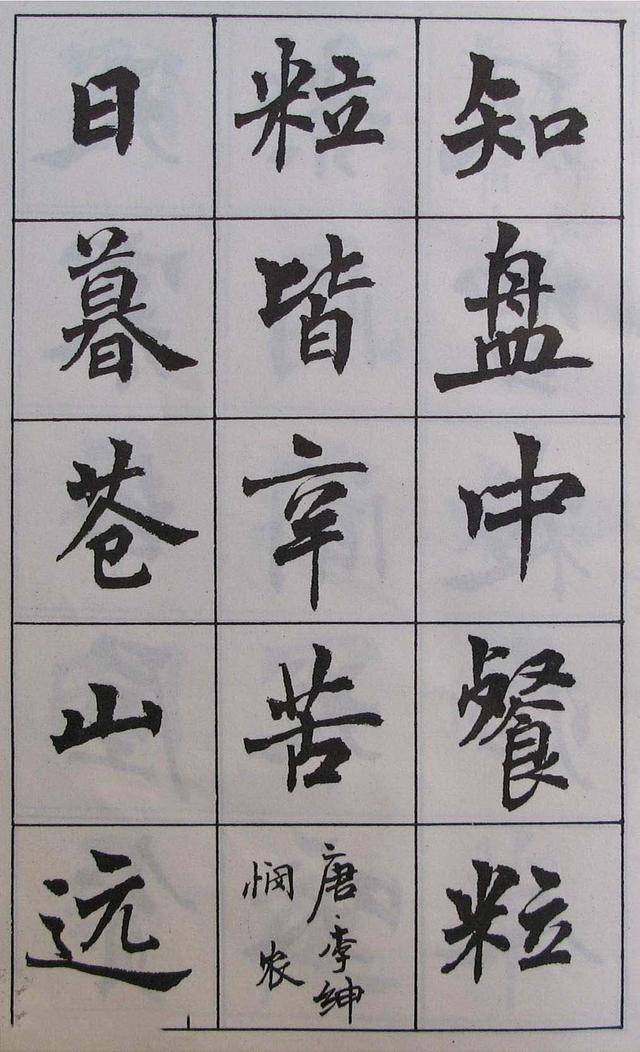 知盘中餐粒
粒皆辛苦
唐李绅
悯农
日暮苍山远